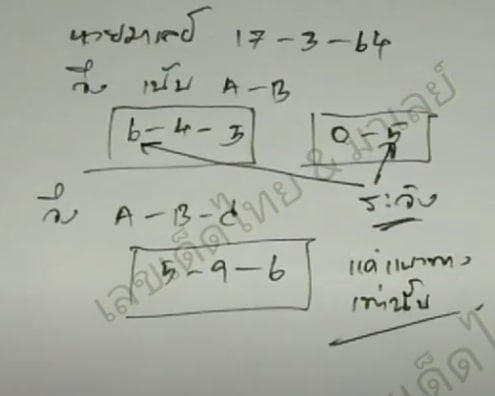 หวยมาเลย์ 17-3-64
จึง เน้น A-B
6-4-3 0-5
ระวัง
จึง A-B-C
5-9-6
แค่แนวทาง
เท่านั้น
เลขเด็ดไทย & มาเลย์